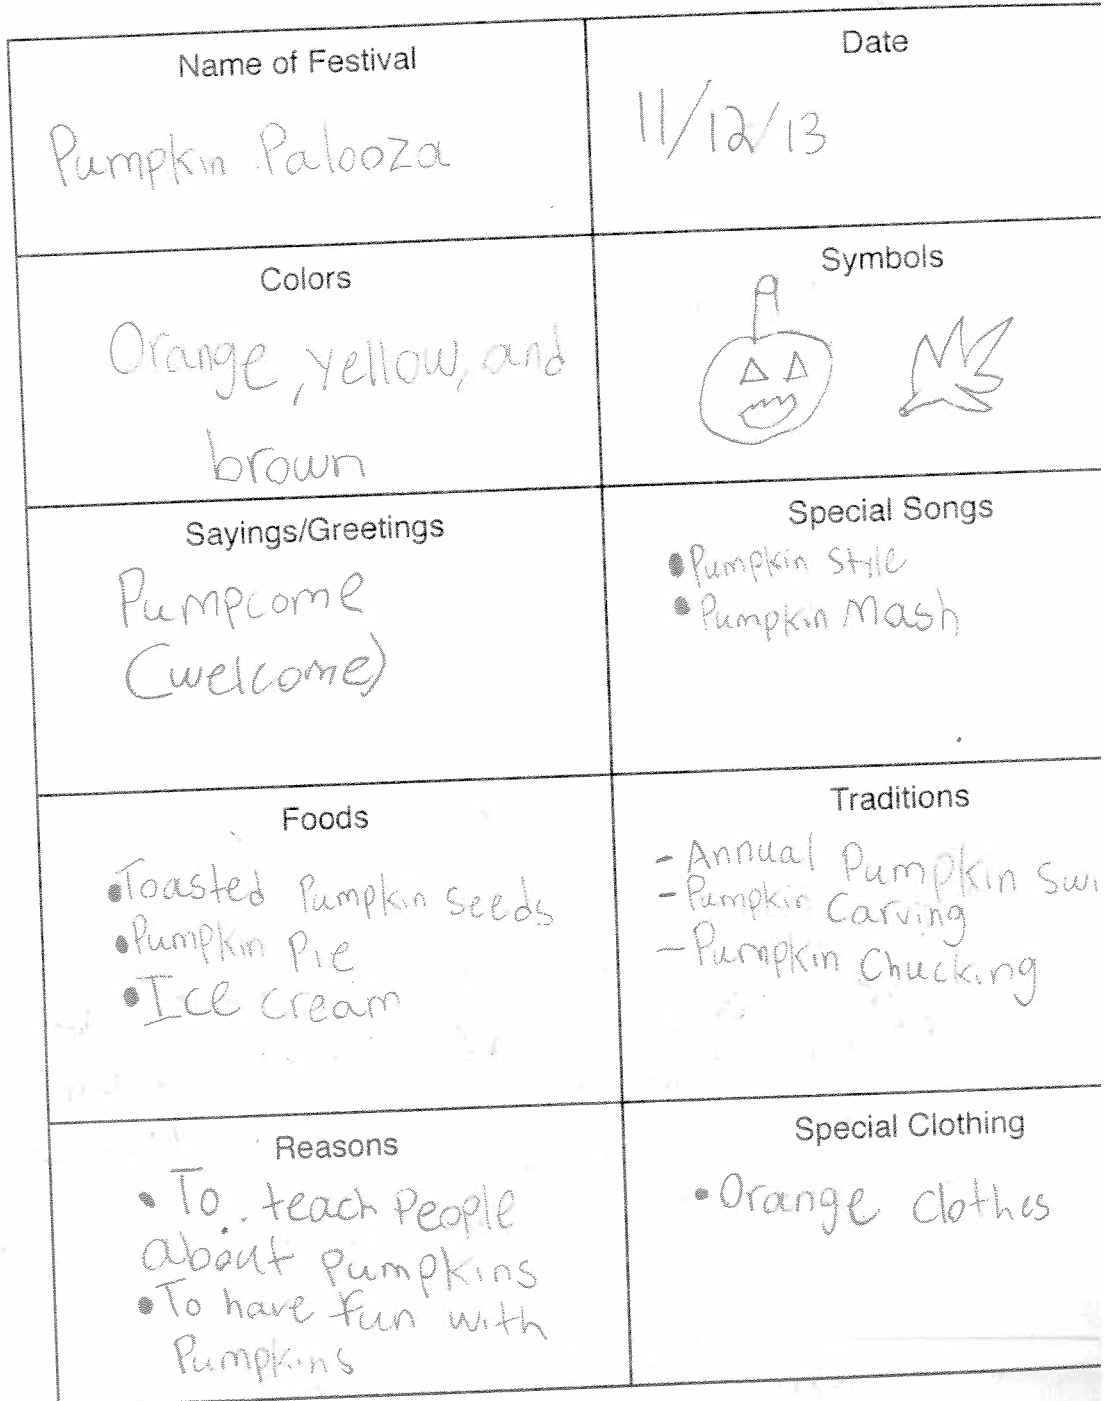 Name of Festival
Pumpkin Palooza
Date
11/12/13
Colors
Orange, yellow, and
brown
Symbols
Sayings/Greetings
Pumpcome
(welcome)
Special Songs
• Pumpkin Style
• Pumpkin Mash
Foods
• Toasted Pumpkin Seeds
• Pumpkin Pie
• Ice cream
Traditions
- Annual Pumpkin Swi
- Pumpkin Carving
- Pumpkin Chucking
Reasons
• To teach People
about Pumpkins
• To have fun with
Pumpkins
Special Clothing
• Orange clothes